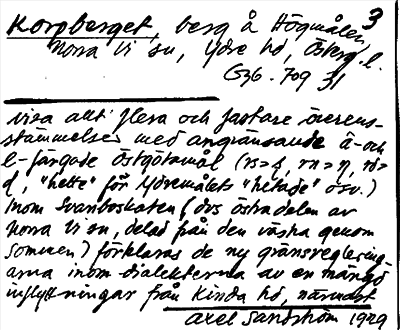 3
Korpberget, berg å Högmålen,
Norra Vi sn, Ydre hd, Österg. l.
(536. 709 3)
visa allt flera och fastare överens-
stämmelser med angränsande â- och
l-färgade östgötamål (rs>s, rn>n, rd>
d, "hette" för Ydremålets "hetade" osv.)
Inom Svanboskaten (dvs östra delen av
Norra Vi sn, delad från den västra genom
Sommen) förklaras de ny gränsreglering-
arna inom dialekterna av en mängd
inflyttningar från Kinda hd, närmast
Axel Sandström 1929